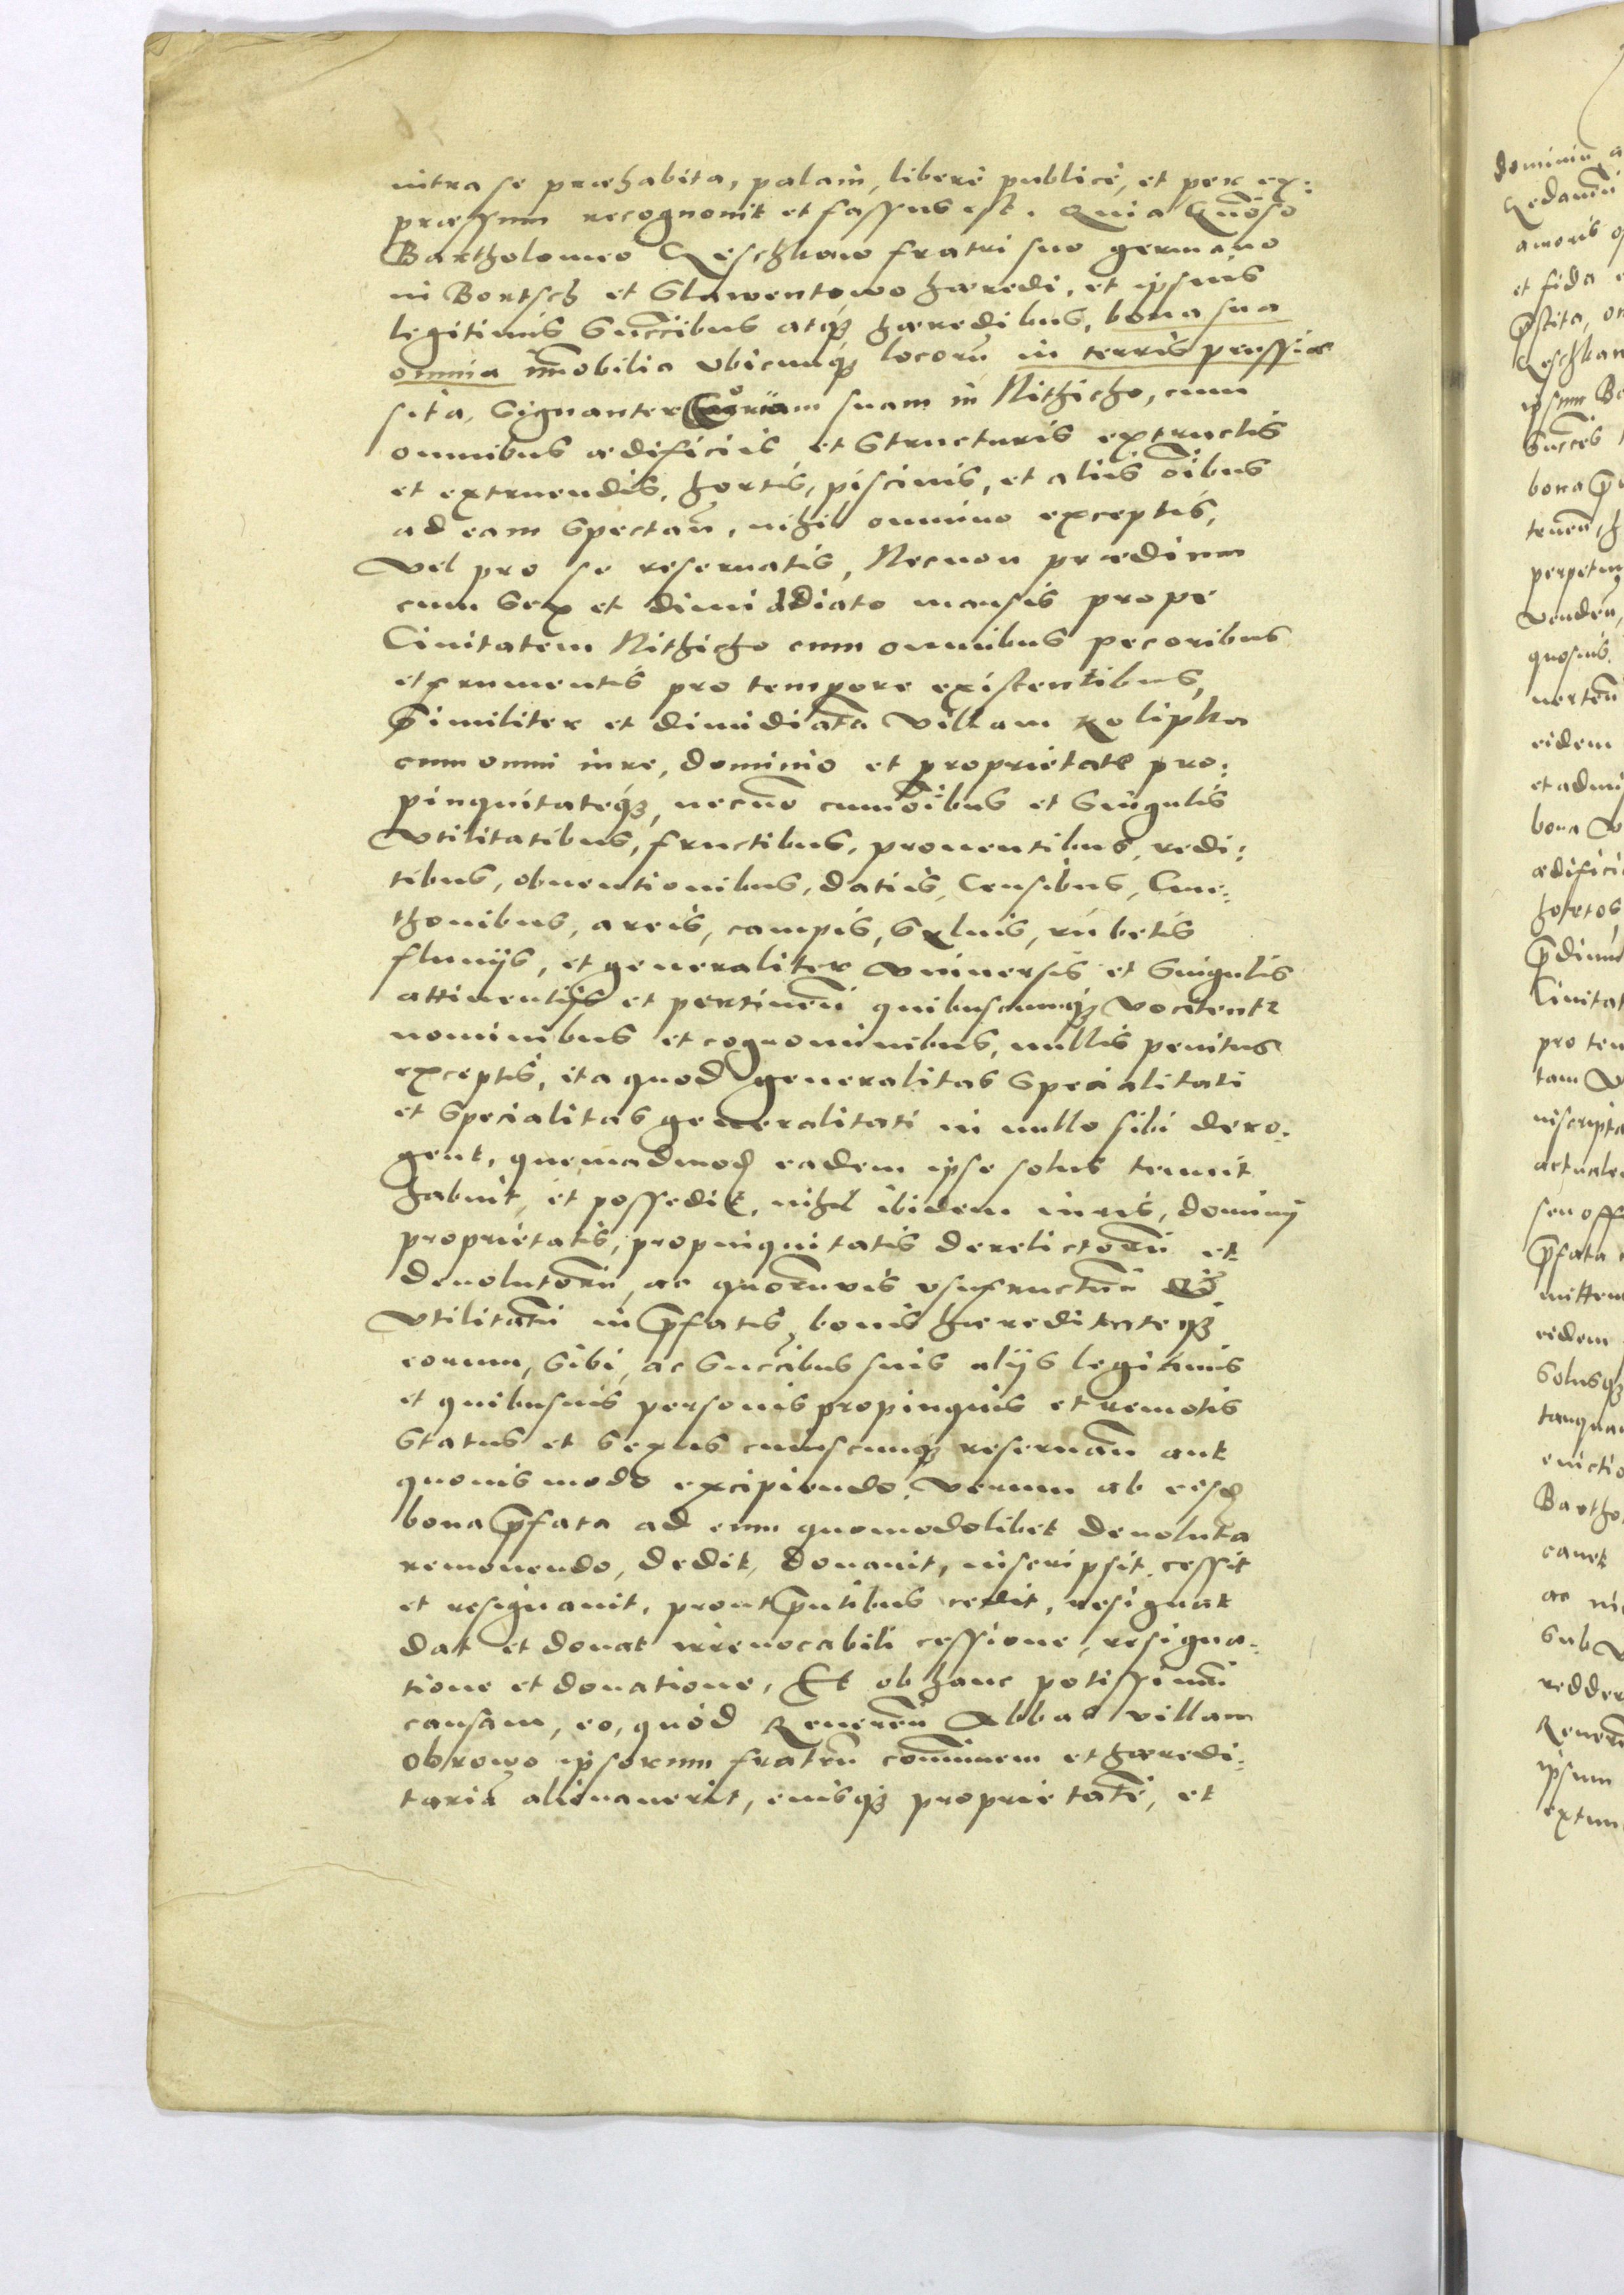 intra se præhabita, palam, liberè publicè, et per ex:
præssum recognouit et fassus est. Quia Gnōso
Bartholomeo Leschkaw fratri suo germano
in Bortsch et Slawentowo hæredi, et ipsius
legitimis Succībus atq3 hæredibus, bona sua
omnia īmobilia vbicunq3 locorū in terris prussiæ
sita, Signanter Curiam suam in Nithicho, cum
omnibus ædificiis et Structuris extructis
et extruendis, hortis, piscinis, et aliis oībus
ad eam Spectan̄, nihil omnino exceptis,
vel pro se reseruatis, Necnon prædium
cum Sex et dimidiato mansis prope
Ciuitatem Nithicho cum omnibus pecoribus
et frumentis pro tempore existentibus,
Similiter et dimidiatā villam Kolipka
cum omni iure, dominio et proprietate pro:
pinquitateq3, necnō cum oībus et Singulis
vtilitatibus, fructibus, prouentibus, redi:
tibus, obuentionibus, datiis, Censibus, Cme:
thonibus, areis, campis, Syluis, rubetis
fluuijs, et generaliter vniuersis et Singulis
attinentijs et pertinen̄ quibuscunq3 vocitentr
nominibus et cognominibus, nullis penitus
exceptis, ita quod generalitas Specialitati
et Specialitas generalitati in nullo sibi dero:
gent, quemadmod eadem ipse solus tenuit
habuit, et possedit, nihil ibidem iuris, dominij
proprietatis, propinquitatis derelictorū et
deuolutorū, ac quorumuis vsufructuū
vtilitatū in p̄fatis bonis hæreditateq3
eorum, Sibi, ac Succībus suis alijs legitimis
et quibusuis personis propinquis et remotis
Status et Sexus cuiuscunq3 reseruan̄ aut
quouis modo excipiendo. Verum ab eisd
bona p̄fata ad eum quomodolibet deuoluta
remouendo, dedit, donauit, inscripsit, cessit
et resignauit, prout p̄ntibus cedit, resignat
dat et donat irreuocabili cessione, resigna:
tione et donatione, Et ob hanc potissimū
causam, eo, quòd Reuerēn Abbas villam
Obrowo ipsorum fratrū com̄unem et hæredi:
tariā alienauerit, eiusq3 proprietatē, et